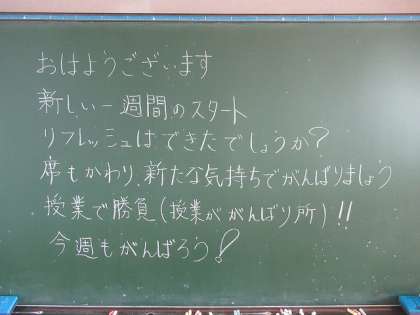 おはようございます
新しい一週間のスタート
リフレッシュはできたでしょうか?
席もかわり、新たな気持ちでがんばりましょう
授業で勝負(授業ががんばり所)!!
今週もがんばろう!